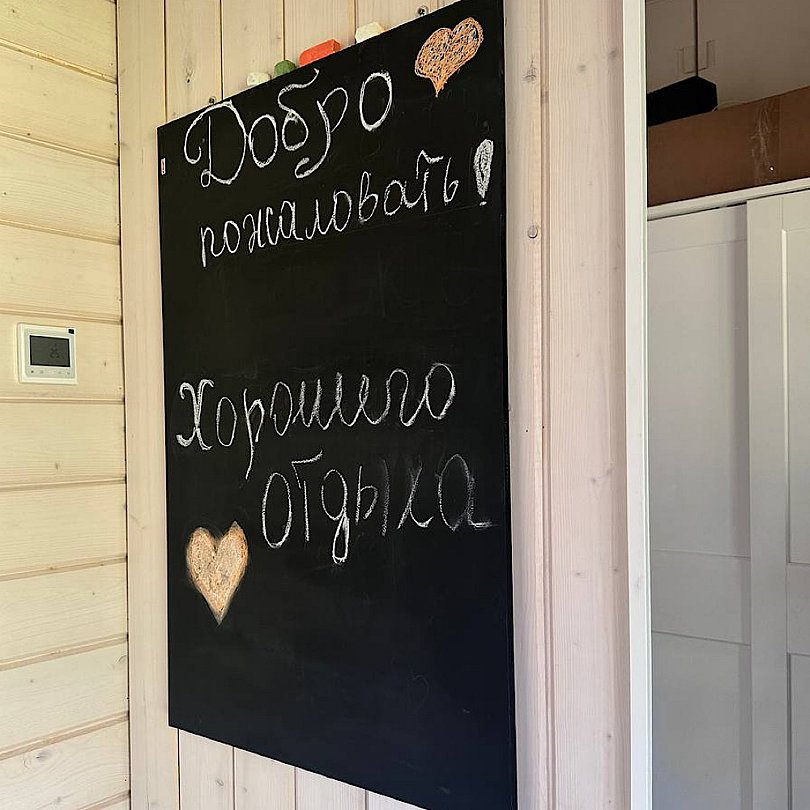 Добро
пожаловать!
Хорошего
отдыха